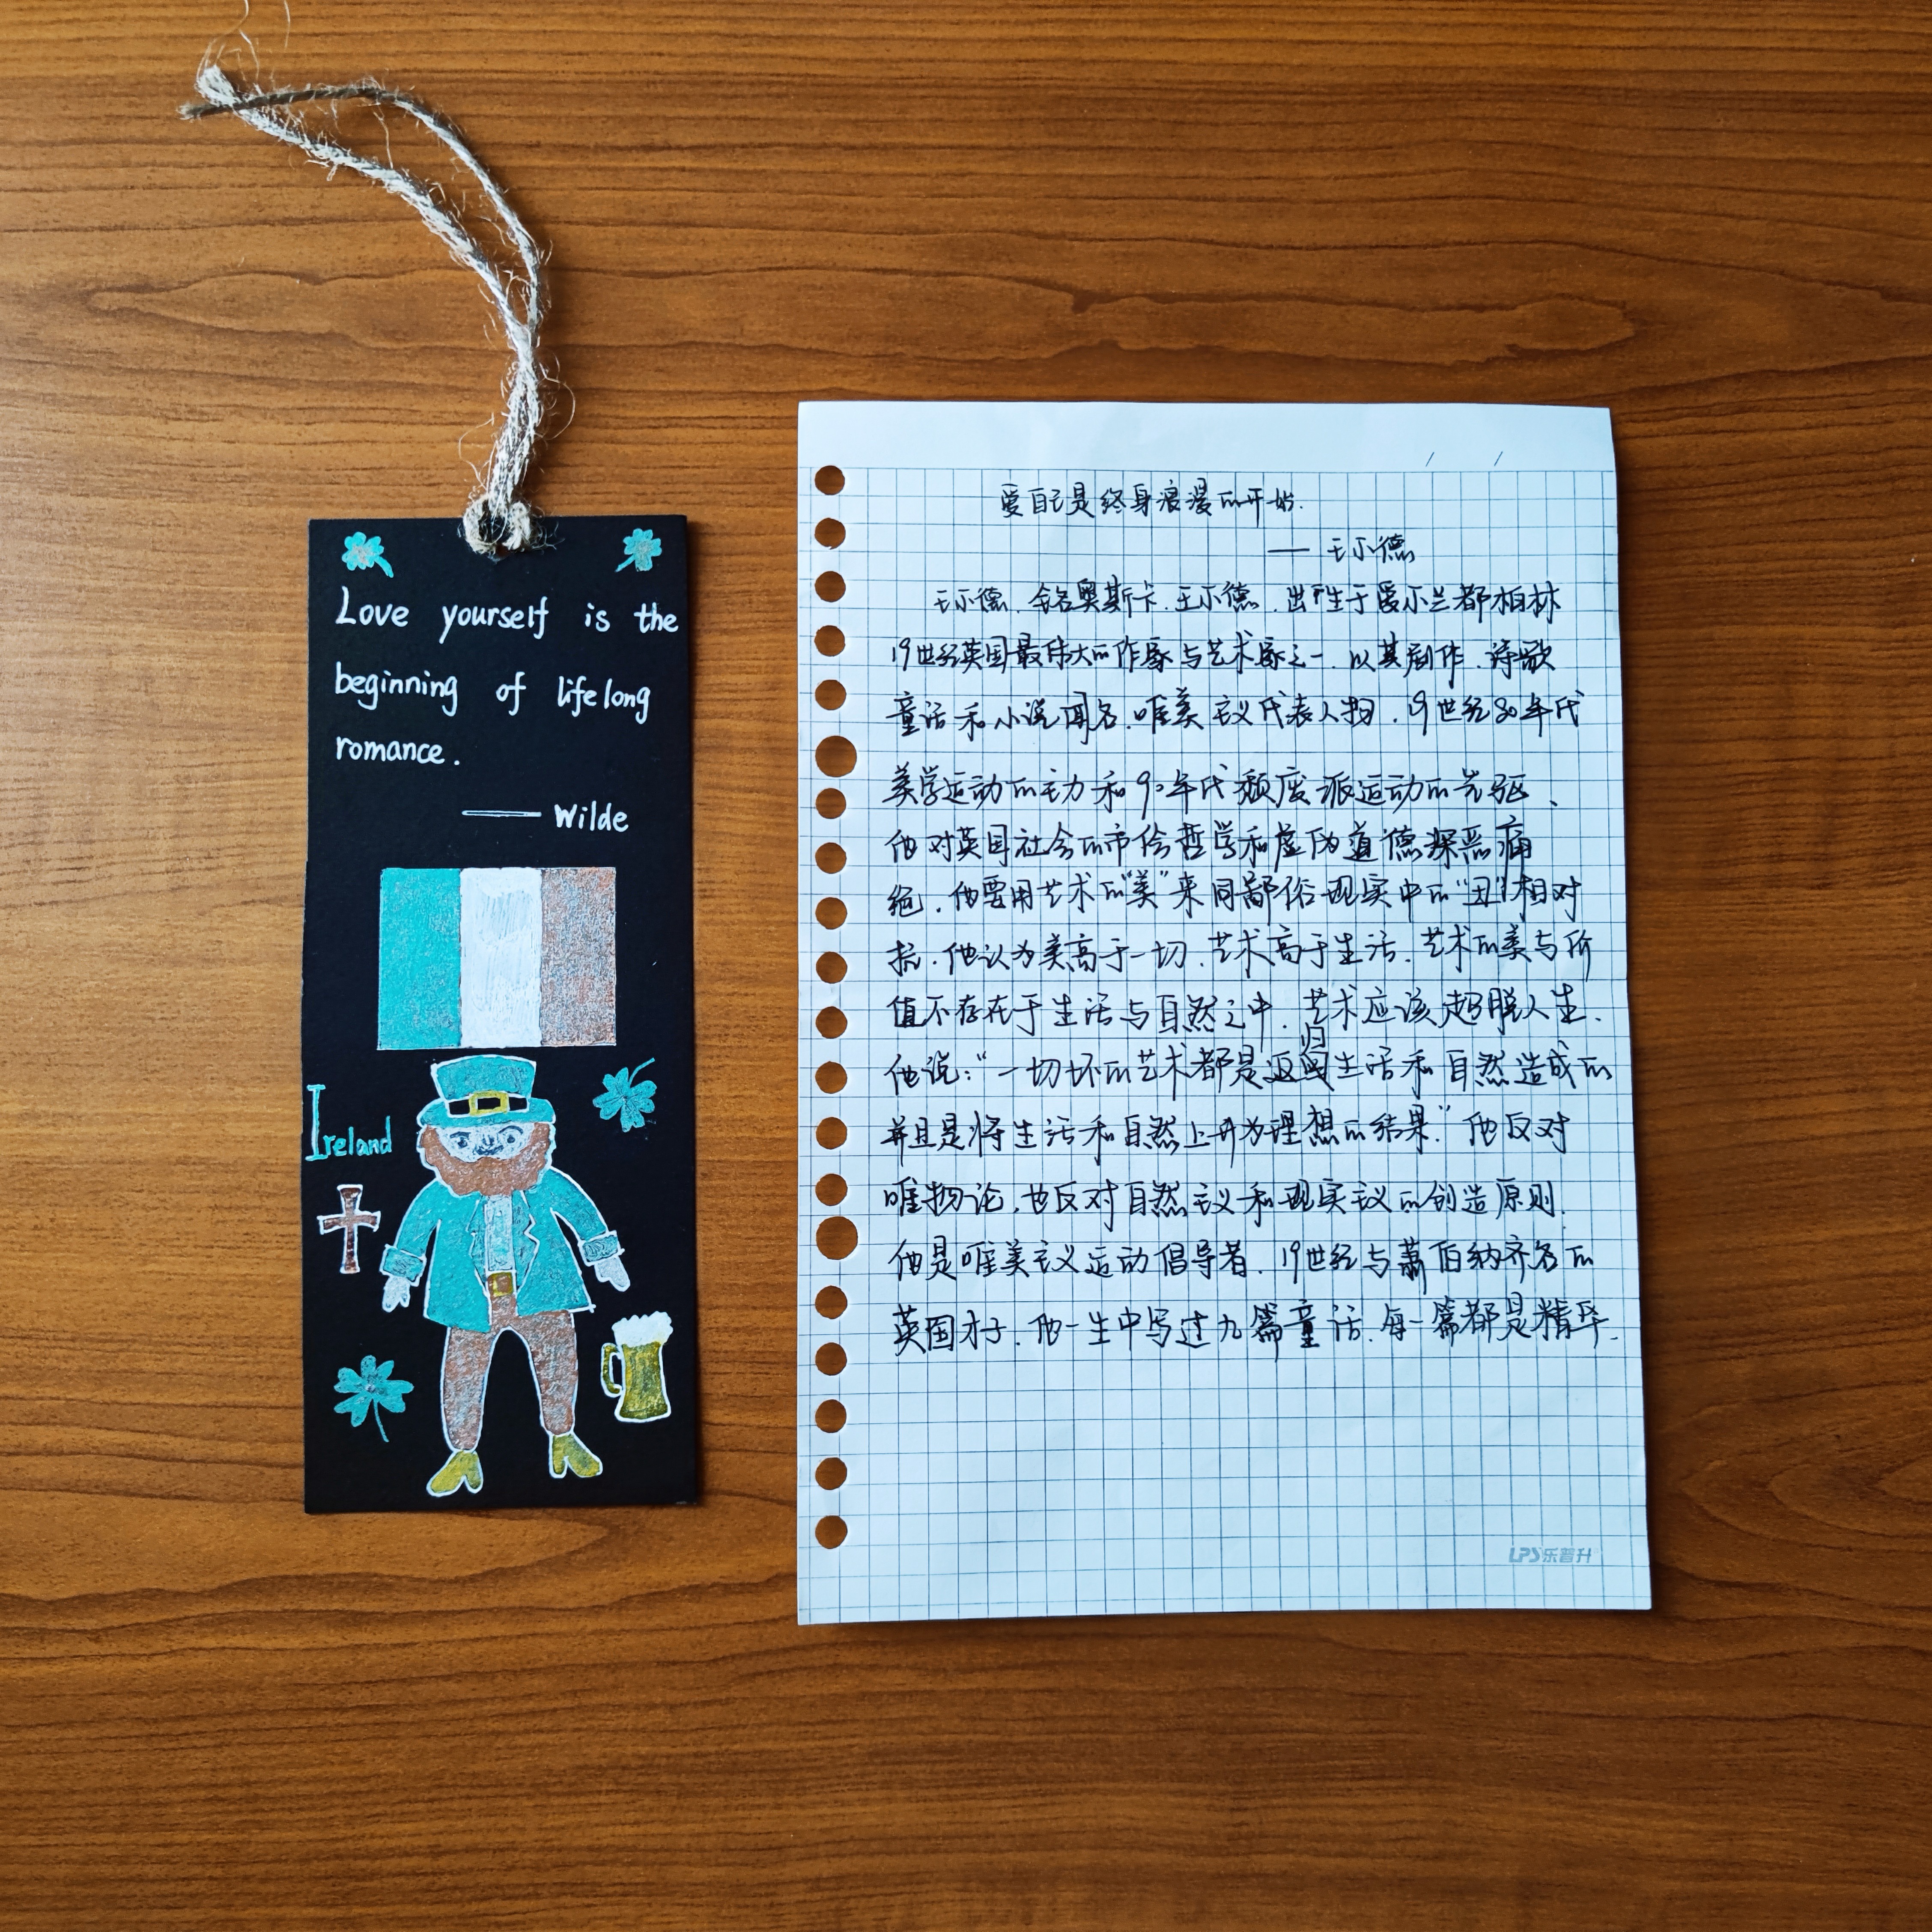 Love yourself is the
beginning of lifelong
romance.
—— Wilde
Ireland
爱自己是终身浪漫的开始.
—— 王尔德
王尔德.全名奥斯卡.王尔德.出生于爱尔兰都柏林
19世纪英国最伟大的作家与艺术家之一.以其剧作.诗歌
童话和小说闻名.唯美主义代表人物.19世纪80年代
美学运动的主力和90年代颓废派运动的先驱.
他对英国社会的市侩哲学和虚伪道德深恶痛
绝.他要用艺术的“美”来同鄙俗现实中的“丑”相对
抗.他认为美高于一切.艺术高于生活.艺术的美与价
值不存在于生活与自然之中.艺术应该超脱人生.
他说:“一切坏的艺术都是返归生活和自然造成的
并且是将生活和自然上升为理想的结果.”他反对
唯物论.也反对自然主义和现实主义的创造原则.
他是唯美主义运动倡导者.19世纪与萧伯纳齐名的
英国才子.他一生中写过九篇童话.每一篇都是精华.
LPS乐普升